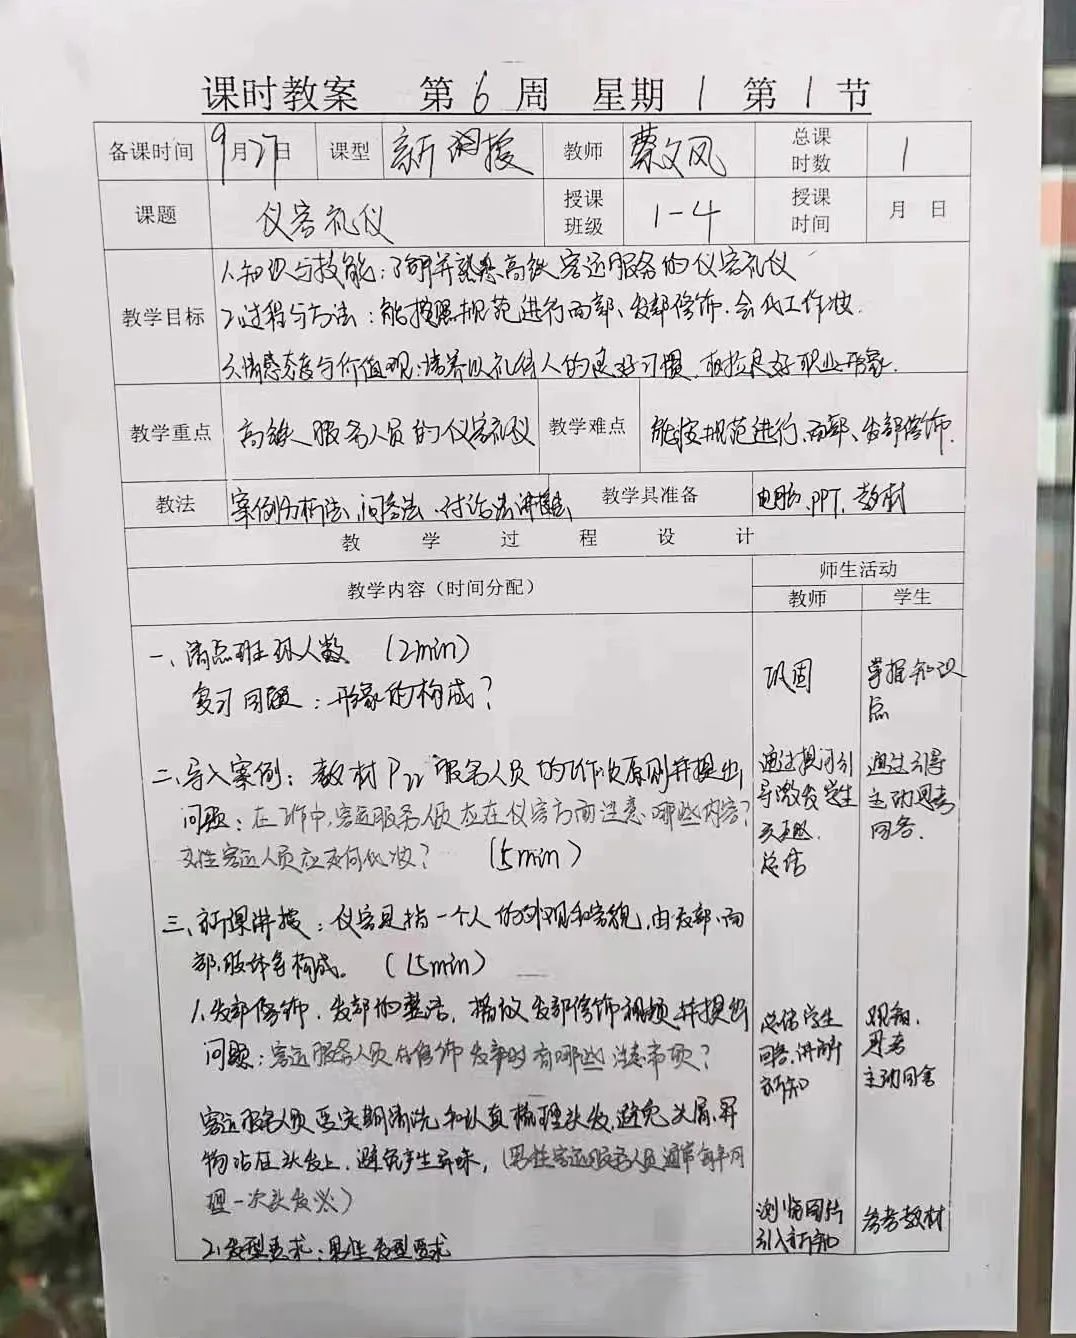 课时教案 第6周 星期1 第1节
备课时间 9月27日 课型 新课授 教师 蔡文风 总课时数 1
课题 仪容礼仪 授课班级 1-4 授课时间 月 日
教学目标 1、知识与技能：了解并熟悉高铁客运服务的仪容礼仪
2、过程与方法：能按照规范进行面部、发部修饰、会化工作妆.
3、情感态度与价值观：培养以礼待人的良好习惯、树立良好职业形象.
教学重点 高铁服务人员的仪容礼仪 教学难点 能按规范进行、面部、发部修饰.
教法 案例分析法、问答法、讨论法 教学具准备 电脑、PPT、教材
教学过程设计
教学内容（时间分配） 师生活动
教师 学生
一、清点班级人数 (2min)
复习问题：形象的构成？
巩固
掌握知识点
二、导入案例：教材P22服务人员的化妆原则并提出
问题：在工作中，客运服务人员应在仪容方面注意哪些内容？
女性客运人员应如何化妆？ (5min)
通过提问引
导激发学生
兴趣.
总结
通过引导
主动思考
回答.
三、新课讲授：仪容是指一个人的外观和容貌，由发部、面
部、肢体等构成。 (15min)
1、发部修饰、发部的整洁，播放发部修饰视频并提出
问题：客运服务人员在修饰发部时有哪些注意事项？
总结学生
回答、讲解
新知
观看、
思考
主动回答
客运服务人员要定期清洗和认真梳理头发，避免头屑、异
物沾在头发上，避免产生异味，（男性客运服务人员通常每半月
理一次头发）
2、发型要求：男性发型要求
浏览图片
引入新知
参考教材